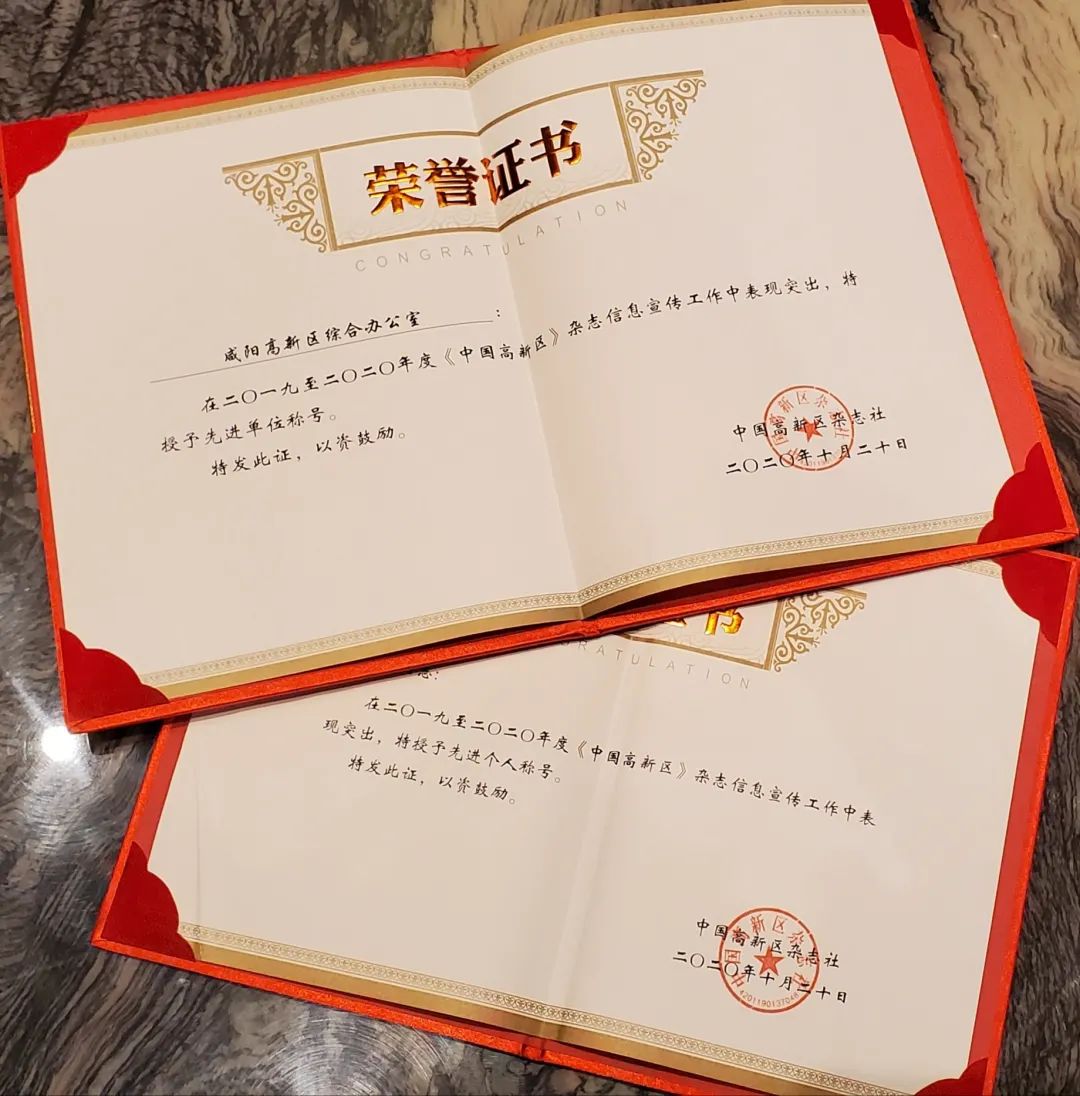 荣誉证书
CONGRATULATION
咸阳高新区综合办公室：
在二〇一九至二〇二〇年度《中国高新区》杂志信息宣传工作中表现突出，特
授予先进单位称号。
特发此证，以资鼓励。
中国高新区杂志社
二〇二〇年十月二十日
书
RATULATION
在二〇一九至二〇二〇年度《中国高新区》杂志信息宣传工作中表
现突出，特授予先进个人称号。
特发此证，以资鼓励。
中国高新区杂志社
二〇二〇年十月二十日